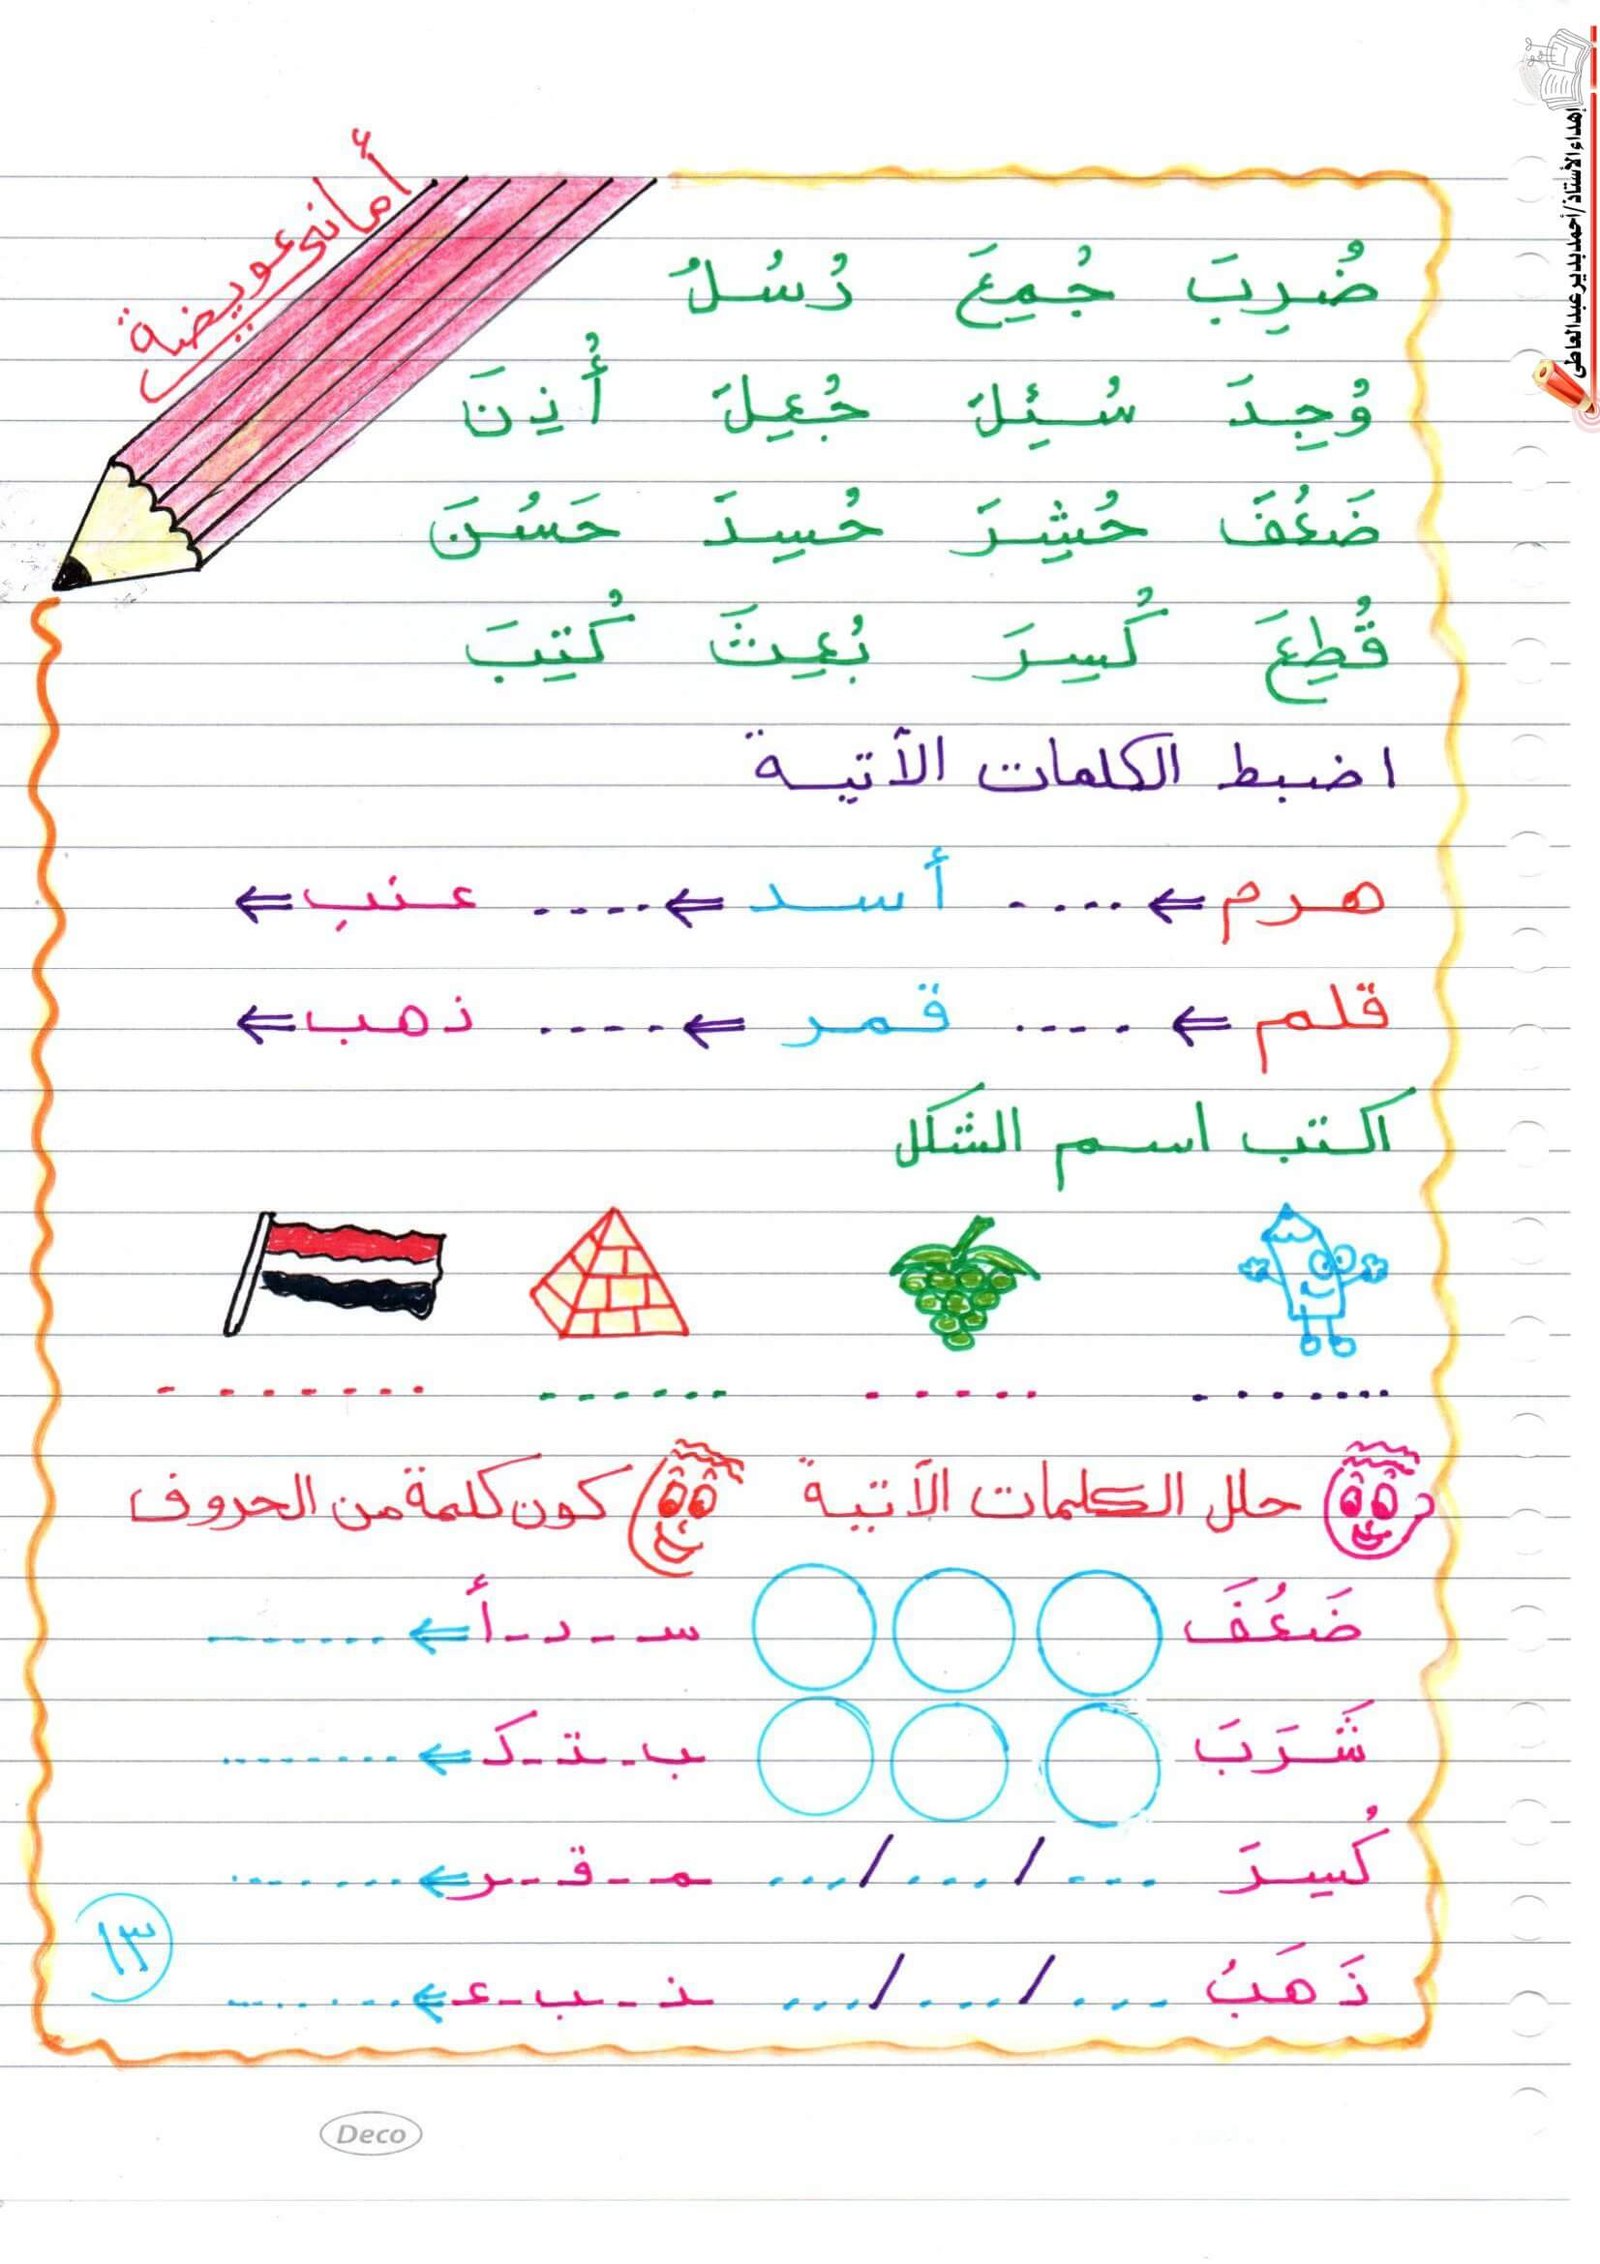 إهداء الأستاذ/أحمد بدير عبدالعاطى
أمانى عويضة
ضُرِبَ جُمِعَ رُسُلُ
وُجِدَ سُئِلَ جُعِلَ أُذِنَ
ضَعُفَ حُشِرَ حُسِدَ حَسُنَ
قُطِعَ كُسِرَ بُعِثَ كُتِبَ
اضبط الكلمات الآتية
هرم ⇐ .... أسد ⇐ .... عنب ⇐
قلم ⇐ .... قمر ⇐ .... ذهب ⇐
اكتب اسم الشكل
حلل الكلمات الآتية كون كلمة من الحروف
ضَعُفَ سـ - د - أ ⇐ .......
شَرَبَ ب - تـ - كـ ⇐ .......
كُسِرَ .../.../... مـ - قـ - ر ⇐ .......
ذَهَبُ .../.../... نـ - ب - ع ⇐ .......
١٣
Deco